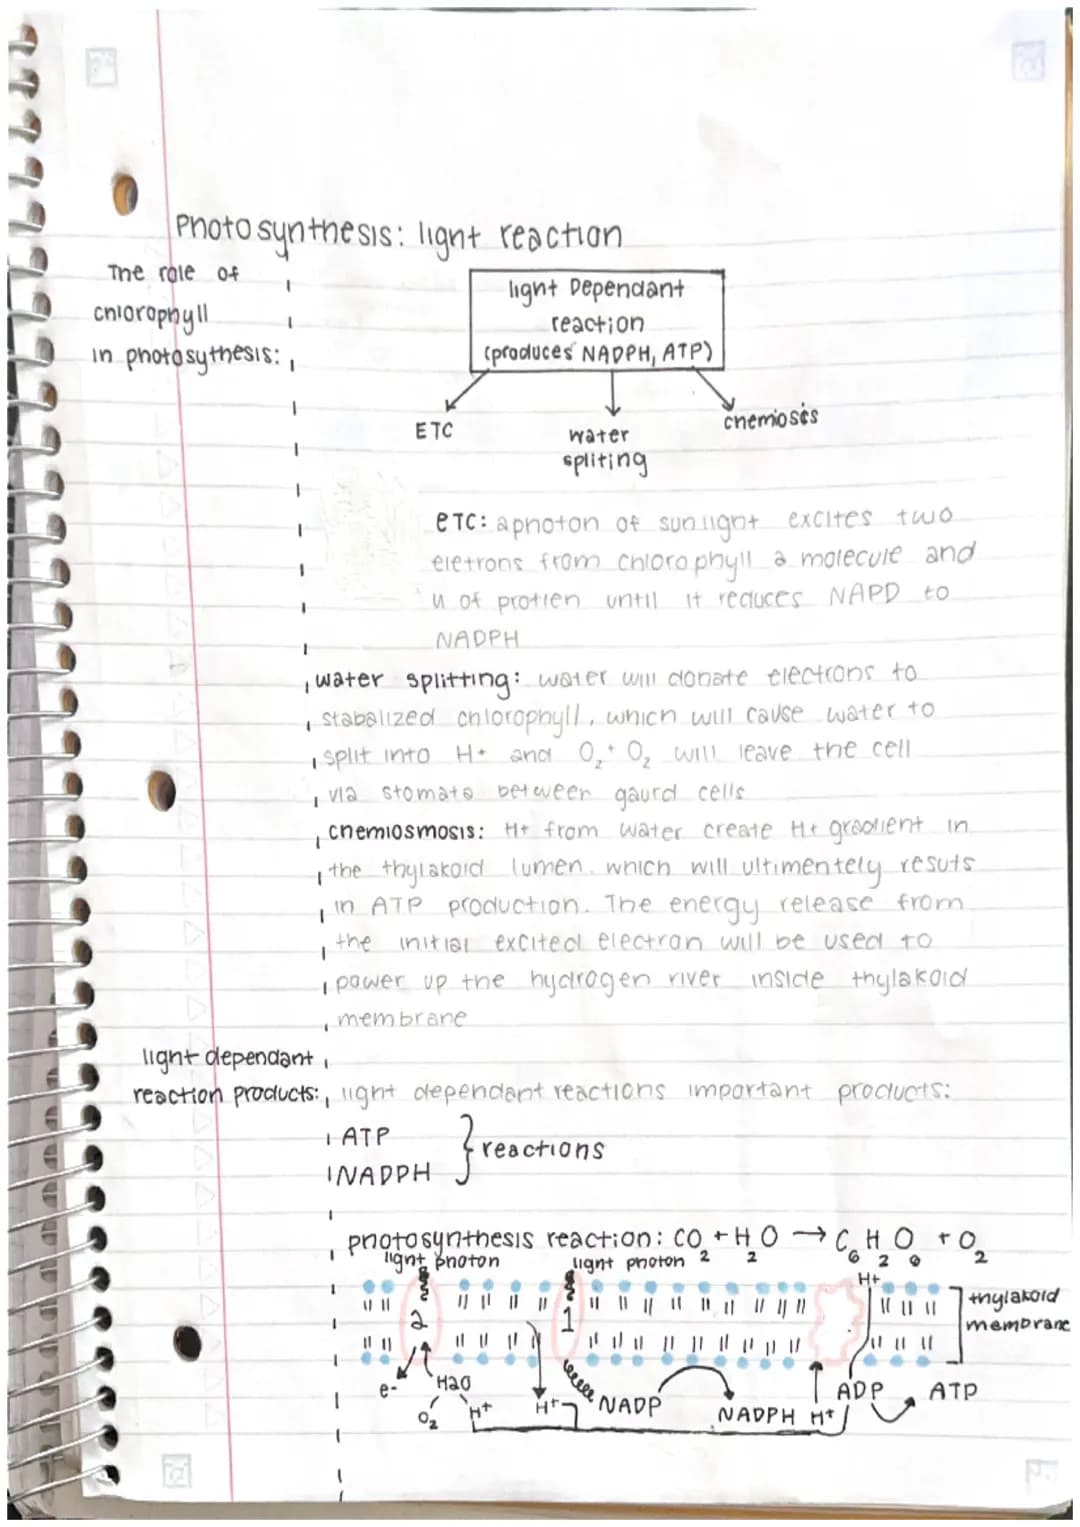 Photosynthesis: light reaction
The role of
chlorophyll
in photosythesis:
light Dependant
reaction
(produces NADPH, ATP)
ETC
water
spliting
chemiosis
ETC: a photon of sunlight excites two
eletrons from chlorophyll a molecule and
u of protien until it reduces NAPD to
NADPH
water splitting: water will donate electrons to
stabalized chlorophyll, which will cause water to
split into H+ and O2+ O2 will leave the cell
via stomata between gaurd cells
chemiosmosis: H+ from water create H+ gradient in
the thylakoid lumen. which will ultimentely resuts
in ATP production. The energy release from
the initial excited electron will be used to
power up the hydrogen river inside thylakoid
membrane
light dependant
reaction products:
light dependant reactions important products:
ATP
NADPH
reactions
photosynthesis reaction: CO2 + H2O → C6H2O6 + O2
light photon
light photon
H+
2
1
thylakoid
membrane
e-
H2O
O2
H+
H+
NADP
NADPH
H+
ADP
ATP